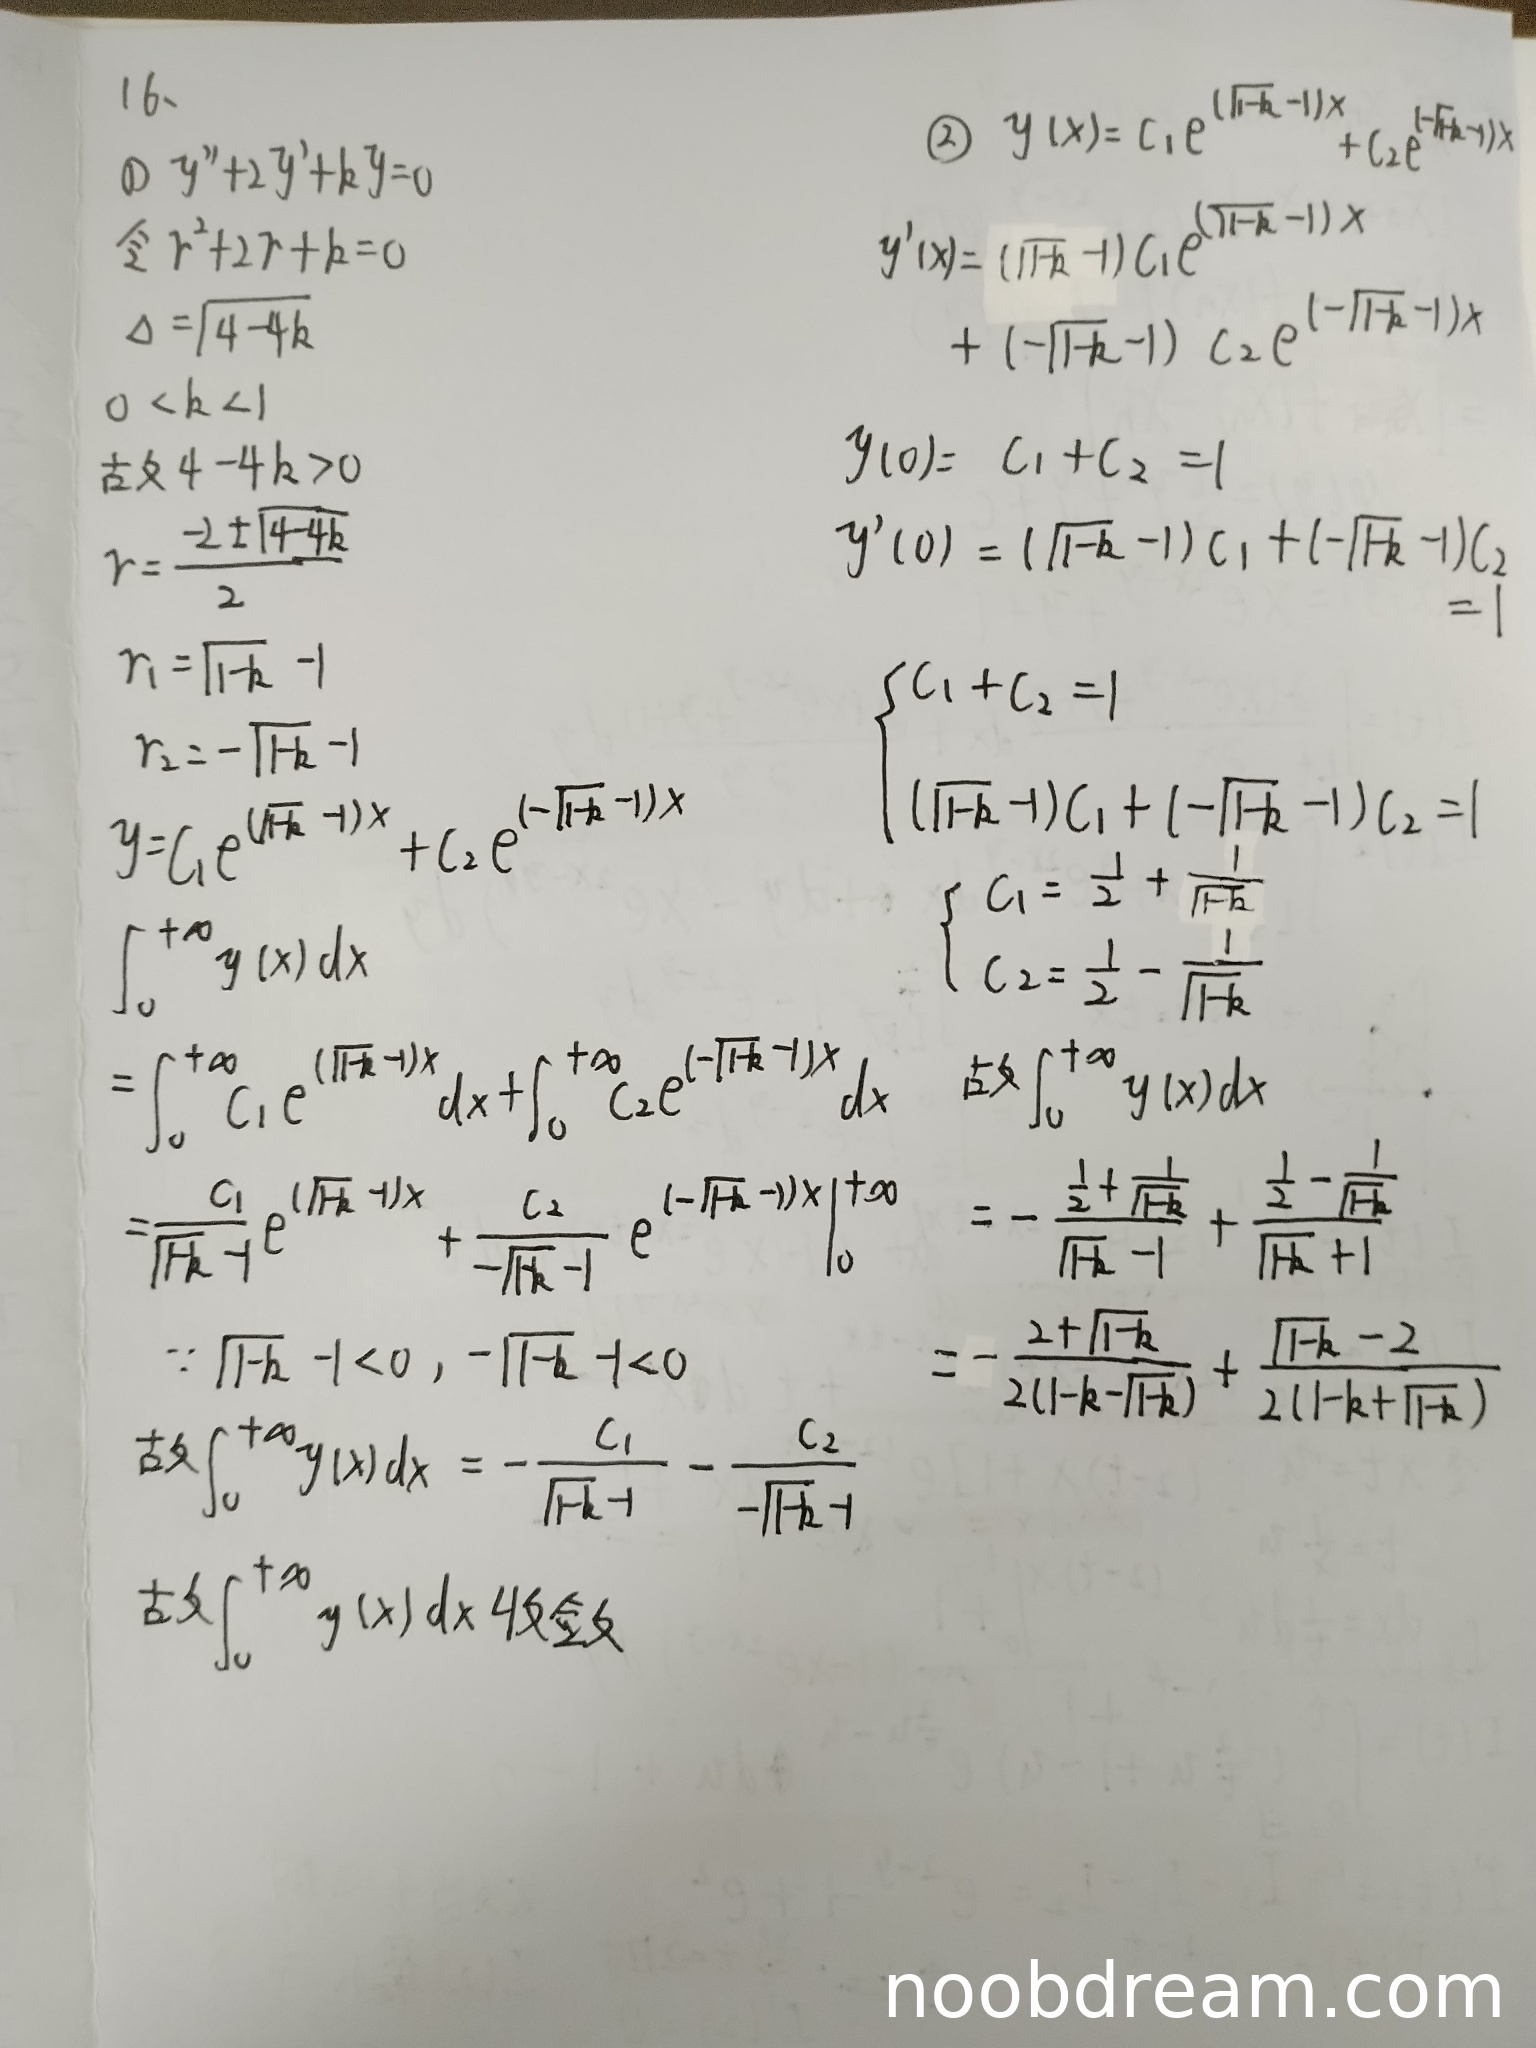 16、
① y''+2y'+ky=0
令 r²+2r+k=0
Δ=√(4-4k)
0<k<1
故 4-4k>0
r=(-2±√(4-4k))/2
r₁=√(1-k) -1
r₂=-√(1-k) -1
y=C₁e^((√(1-k) -1)x)+C₂e^((-√(1-k) -1)x)
∫₀^(+∞) y(x)dx
=∫₀^(+∞) C₁e^((√(1-k) -1)x)dx+∫₀^(+∞) C₂e^((-√(1-k) -1)x)dx
=C₁/(√(1-k) -1) e^((√(1-k) -1)x)+C₂/(-√(1-k) -1) e^((-√(1-k) -1)x)|₀^(+∞)
∵ √(1-k) -1<0, -√(1-k) -1<0
故∫₀^(+∞) y(x)dx = -C₁/(√(1-k) -1) - C₂/(-√(1-k) -1)
故∫₀^(+∞) y(x)dx 收敛
② y(x)=C₁e^((√(1-k) -1)x)+C₂e^((-√(1-k) -1)x)
y'(x)=(√(1-k) -1)C₁e^((√(1-k) -1)x)
+(-√(1-k) -1) C₂e^((-√(1-k) -1)x)
y(0)= C₁+C₂ =1
y'(0) =(√(1-k) -1)C₁+(-√(1-k) -1)C₂
=1
{C₁+C₂=1
(√(1-k) -1)C₁+(-√(1-k) -1)C₂=1
{C₁=1/2+1/√(1-k)
C₂=1/2-1/√(1-k)
故∫₀^(+∞) y(x)dx
=-(1/2+1/√(1-k))/(√(1-k) -1)+(1/2-1/√(1-k))/(√(1-k) +1)
=-(2+√(1-k))/(2(1-k-√(1-k)))+(√(1-k) -2)/(2(1-k+√(1-k)))
noobdream.com